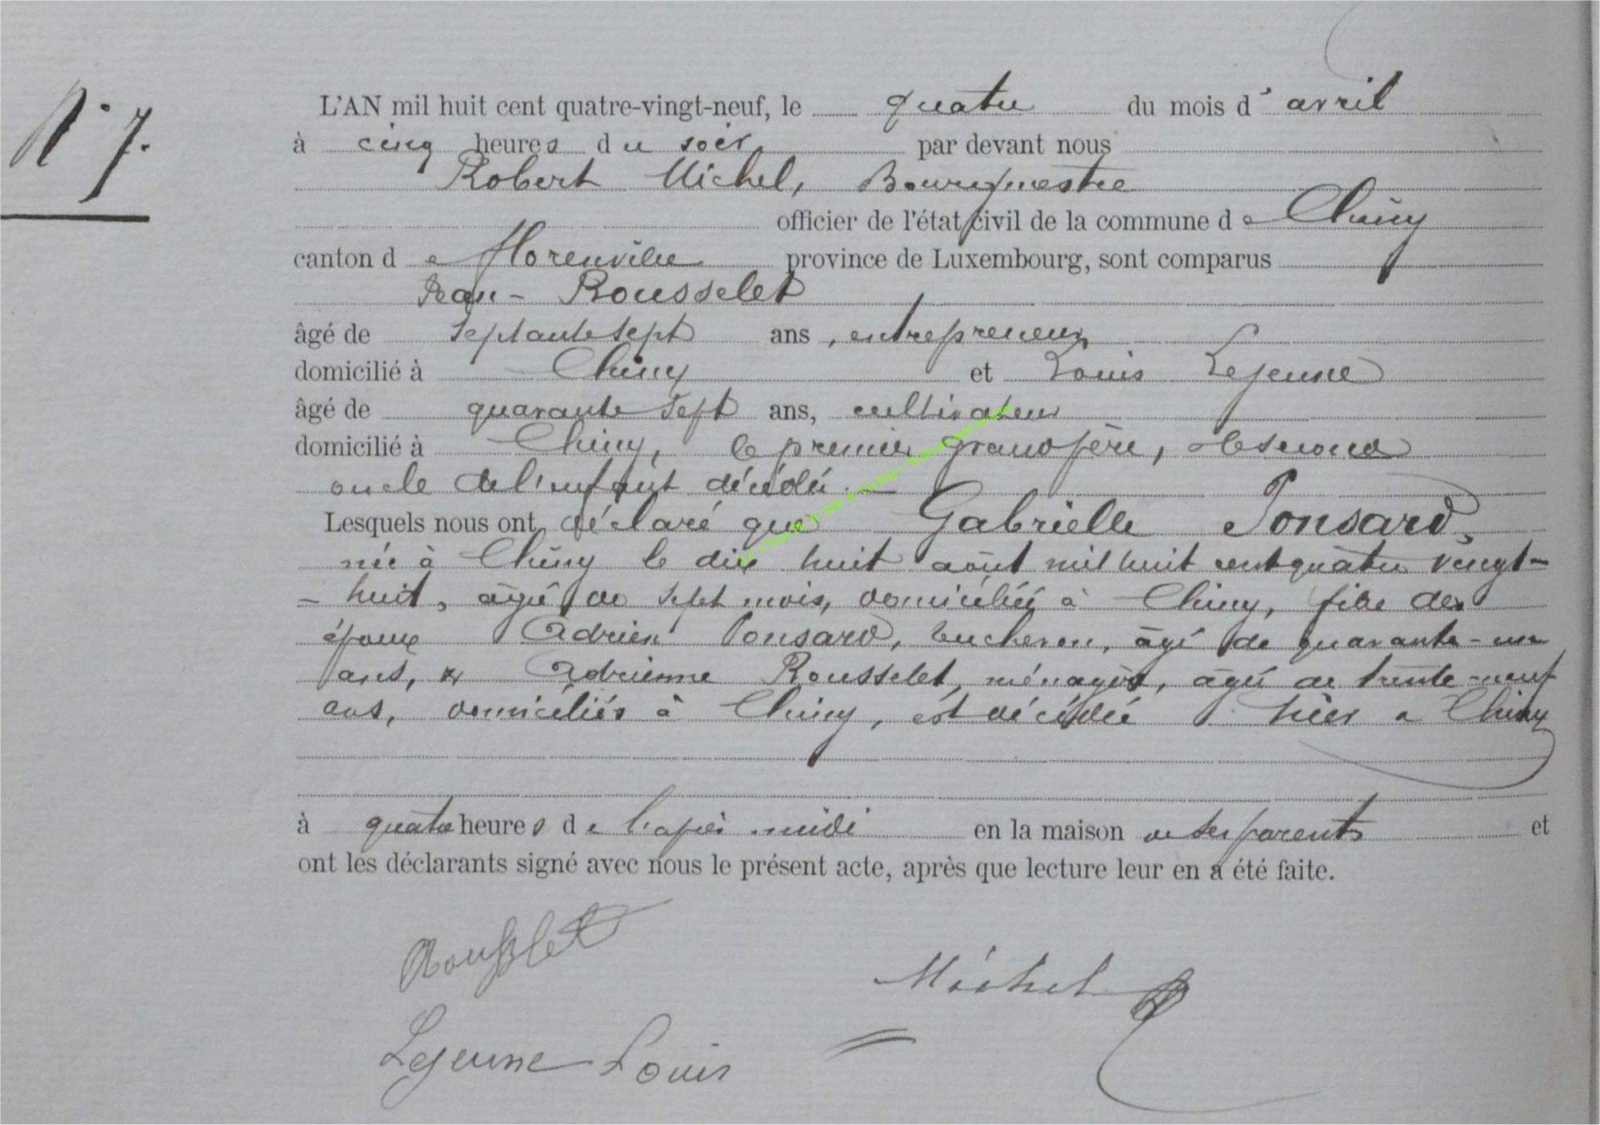 N° 7.
L'AN mil huit cent quatre-vingt-neuf, le quatre du mois d'avril
à cinq heures du soir par devant nous
Robert Michel, Bourgmestre
officier de l'état civil de la commune de Chiny
canton de Florenville province de Luxembourg, sont comparus
Jean - Rousselet
âgé de septante sept ans, entrepreneur
domicilié à Chiny et Louis Lejeune
âgé de quarante sept ans, cultivateur
domicilié à Chiny, le premier grand père, le second
oncle de l'enfant décédé. —
Lesquels nous ont déclaré que Gabrielle Ponsard,
née à Chiny le dix huit août mil huit cent quatre vingt-
- huit, âgée de sept mois, domiciliée à Chiny, fille des
époux Adrien Ponsard, bucheron, âgé de quarante - un
ans, et Adrienne Rousselet, ménagère, âgée de trente-neuf
ans, domiciliés à Chiny, est décédée hier à Chiny
à quatre heures de l'après midi en la maison de ses parents et
ont les déclarants signé avec nous le présent acte, après que lecture leur en a été faite.
Rousselet
Michel
Lejeune Louis